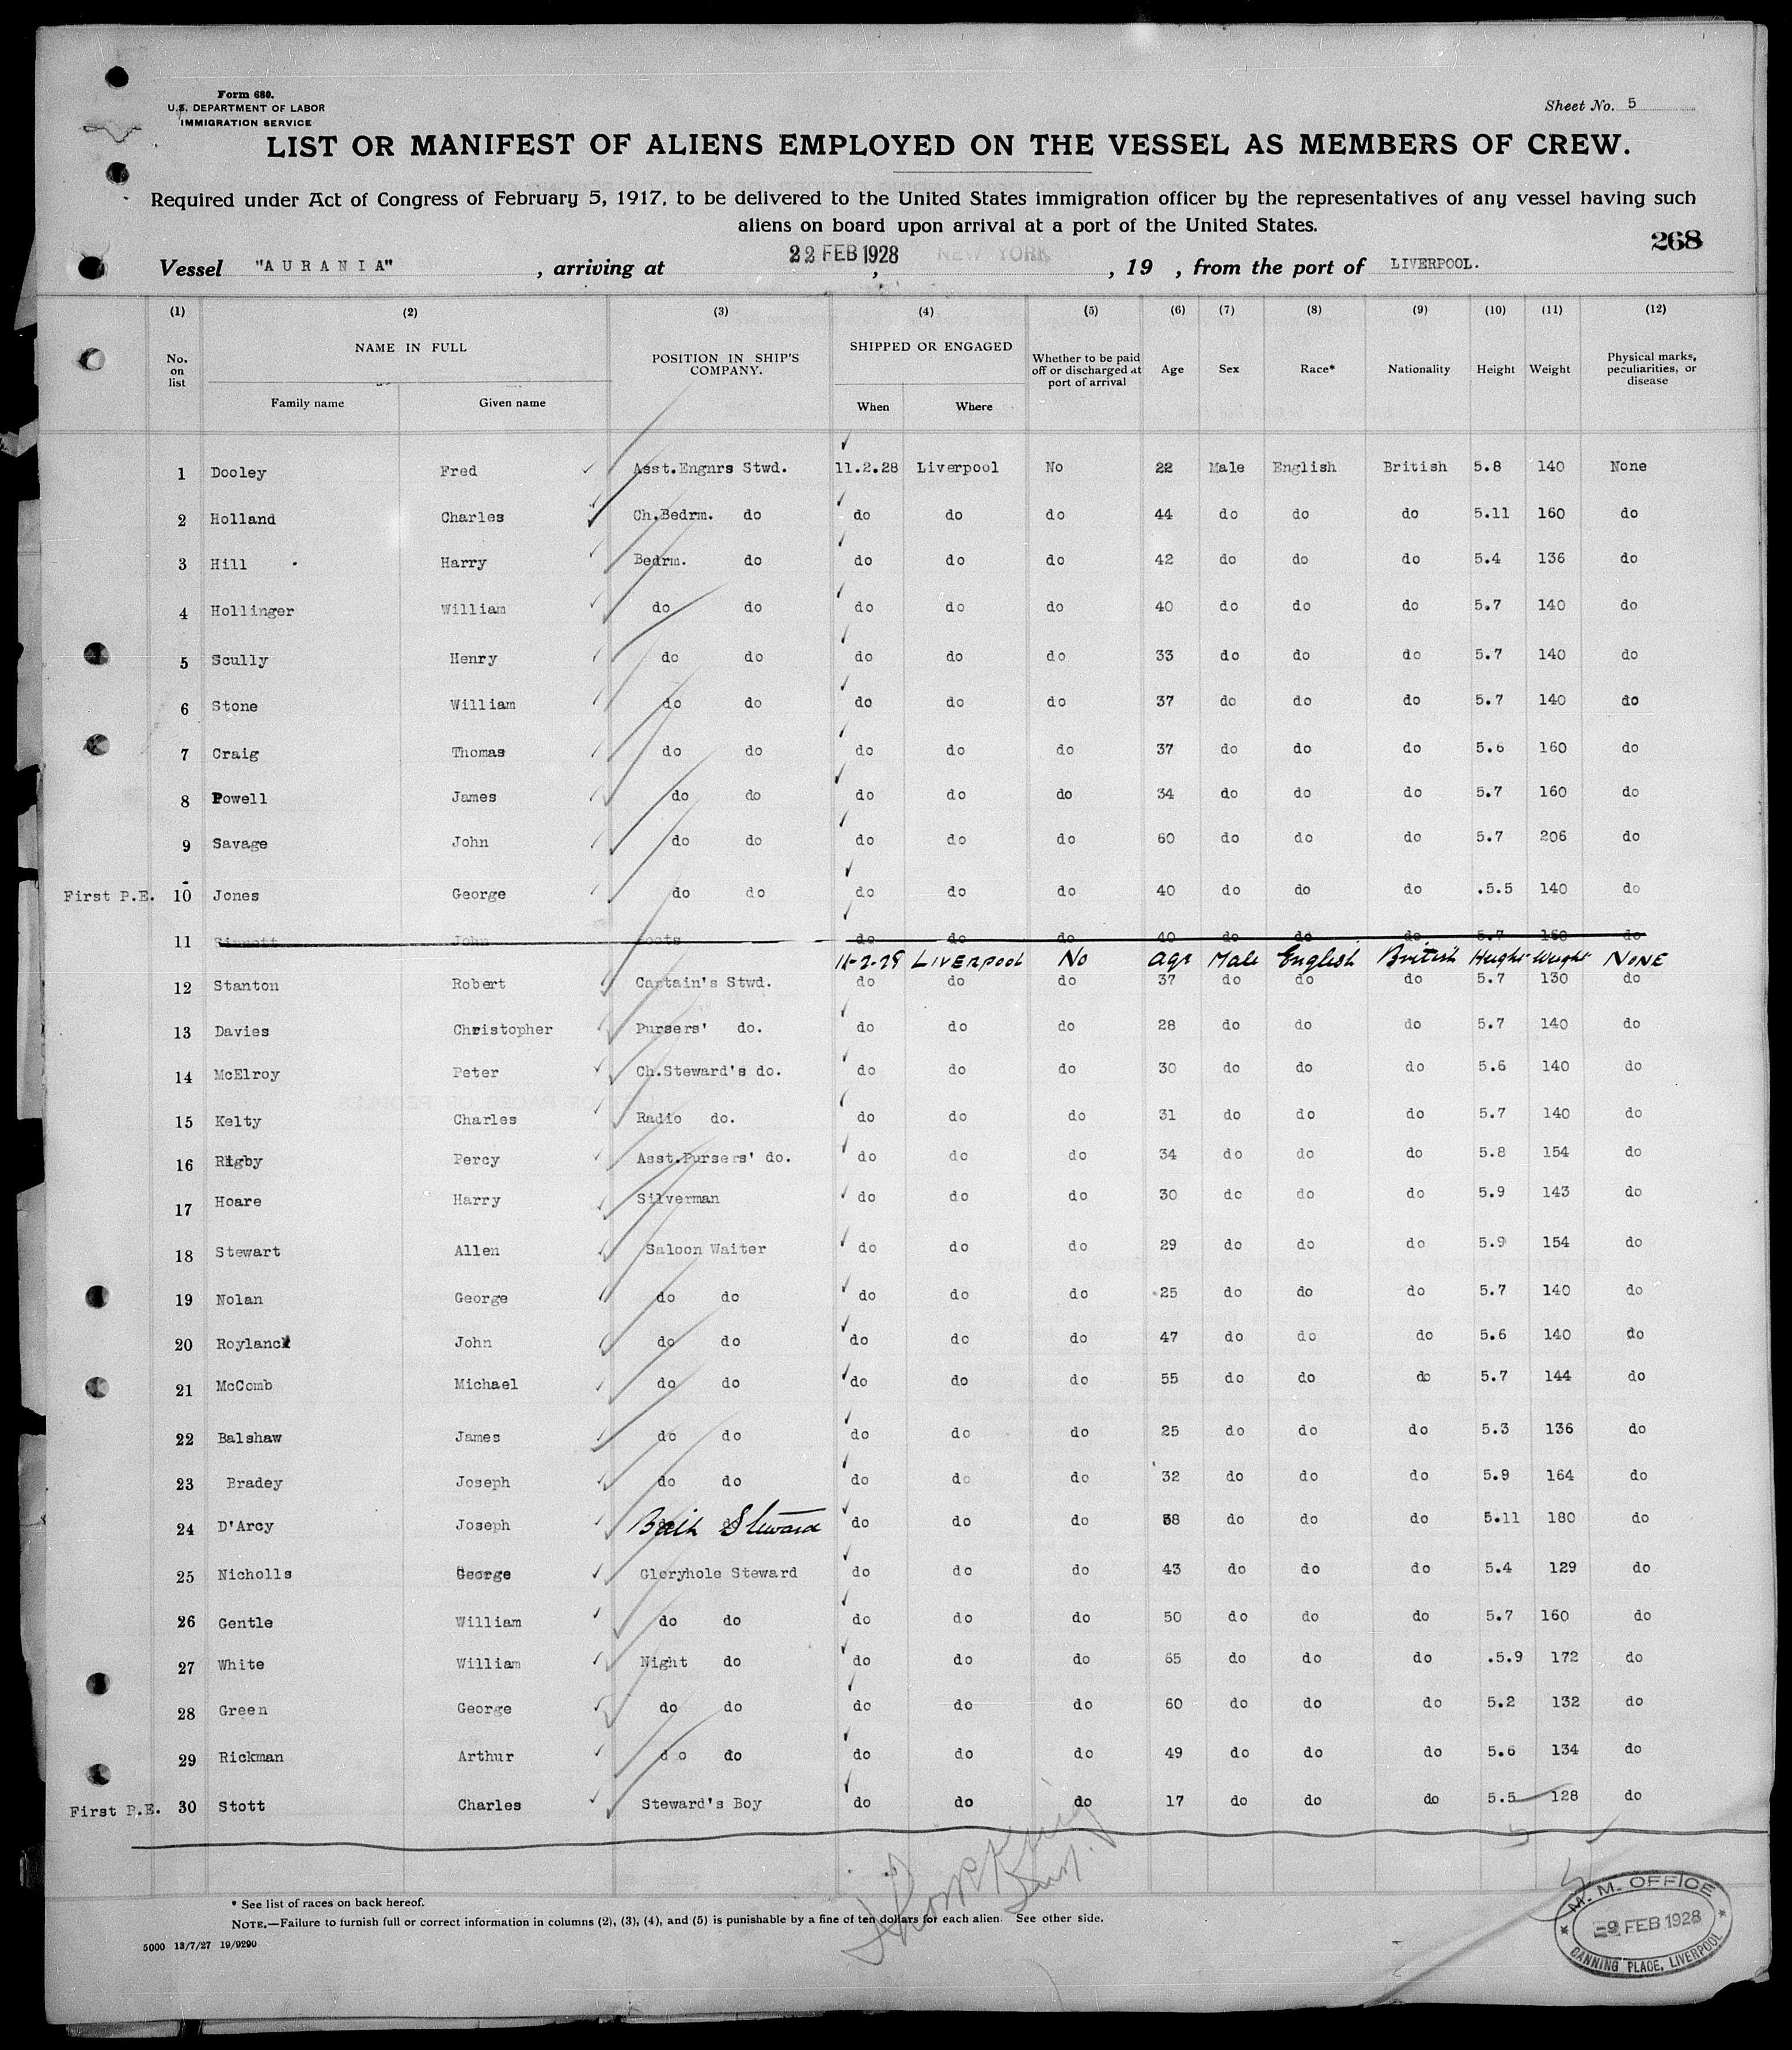 Form 680.
U.S. DEPARTMENT OF LABOR
IMMIGRATION SERVICE
Sheet No. 5
LIST OR MANIFEST OF ALIENS EMPLOYED ON THE VESSEL AS MEMBERS OF CREW.
Required under Act of Congress of February 5, 1917, to be delivered to the United States immigration officer by the representatives of any vessel having such
aliens on board upon arrival at a port of the United States.
268
Vessel "AURANIA", arriving at 22 FEB 1928, NEW YORK, 19 , from the port of LIVERPOOL.
(1) (2) (3) (4) (5) (6) (7) (8) (9) (10) (11) (12)
No. on list NAME IN FULL Family name Given name POSITION IN SHIP'S COMPANY. SHIPPED OR ENGAGED When Where Whether to be paid off or discharged at port of arrival Age Sex Race* Nationality Height Weight Physical marks, peculiarities, or disease
1 Dooley Fred Asst.Engnrs Stwd. 11.2.28 Liverpool No 22 Male English British 5.8 140 None
2 Holland Charles Ch.Bedrm. do do do do 44 do do do 5.11 160 do
3 Hill Harry Bedrm. do do do do 42 do do do 5.4 136 do
4 Hollinger William do do do do do 40 do do do 5.7 140 do
5 Scully Henry do do do do do 33 do do do 5.7 140 do
6 Stone William do do do do do 37 do do do 5.7 140 do
7 Craig Thomas do do do do do 37 do do do 5.6 160 do
8 Powell James do do do do do 34 do do do 5.7 160 do
9 Savage John do do do do do 60 do do do 5.7 206 do
First P.E. 10 Jones George do do do do do 40 do do do .5.5 140 do
11 Sinnott John Boots do do do 40 do do do 5.7 160 do
11-2-28 Liverpool No Age Male English British Height Weight NONE
12 Stanton Robert Captain's Stwd. do do do 37 do do do 5.7 130 do
13 Davies Christopher Pursers' do. do do do 28 do do do 5.7 140 do
14 McElroy Peter Ch.Steward's do. do do do 30 do do do 5.6 140 do
15 Kelty Charles Radio do. do do do 31 do do do 5.7 140 do
16 Rigby Percy Asst.Pursers' do. do do do 34 do do do 5.8 154 do
17 Hoare Harry Silverman do do do 30 do do do 5.9 143 do
18 Stewart Allen Saloon Waiter do do do 29 do do do 5.9 154 do
19 Nolan George do do do do do 25 do do do 5.7 140 do
20 Roylance John do do do do do 47 do do do 5.6 140 do
21 McComb Michael do do do do do 55 do do do 5.7 144 do
22 Balshaw James do do do do do 25 do do do 5.3 136 do
23 Bradey Joseph do do do do do 32 do do do 5.9 164 do
24 D'Arcy Joseph Bath Steward do do do 38 do do do 5.11 180 do
25 Nicholls George Gloryhole Steward do do do 43 do do do 5.4 129 do
26 Gentle William do do do do do 50 do do do 5.7 160 do
27 White William Night do do do do 65 do do do .5.9 172 do
28 Green George do do do do do 60 do do do 5.2 132 do
29 Rickman Arthur do do do do do 49 do do do 5.6 134 do
First P.E. 30 Stott Charles Steward's Boy do do do 17 do do do 5.5 128 do
* See list of races on back hereof.
NOTE.—Failure to furnish full or correct information in columns (2), (3), (4), and (5) is punishable by a fine of ten dollars for each alien. See other side.
5000 13/7/27 19/9290
M. M. OFFICE
-9 FEB 1928
CANNING PLACE, LIVERPOOL